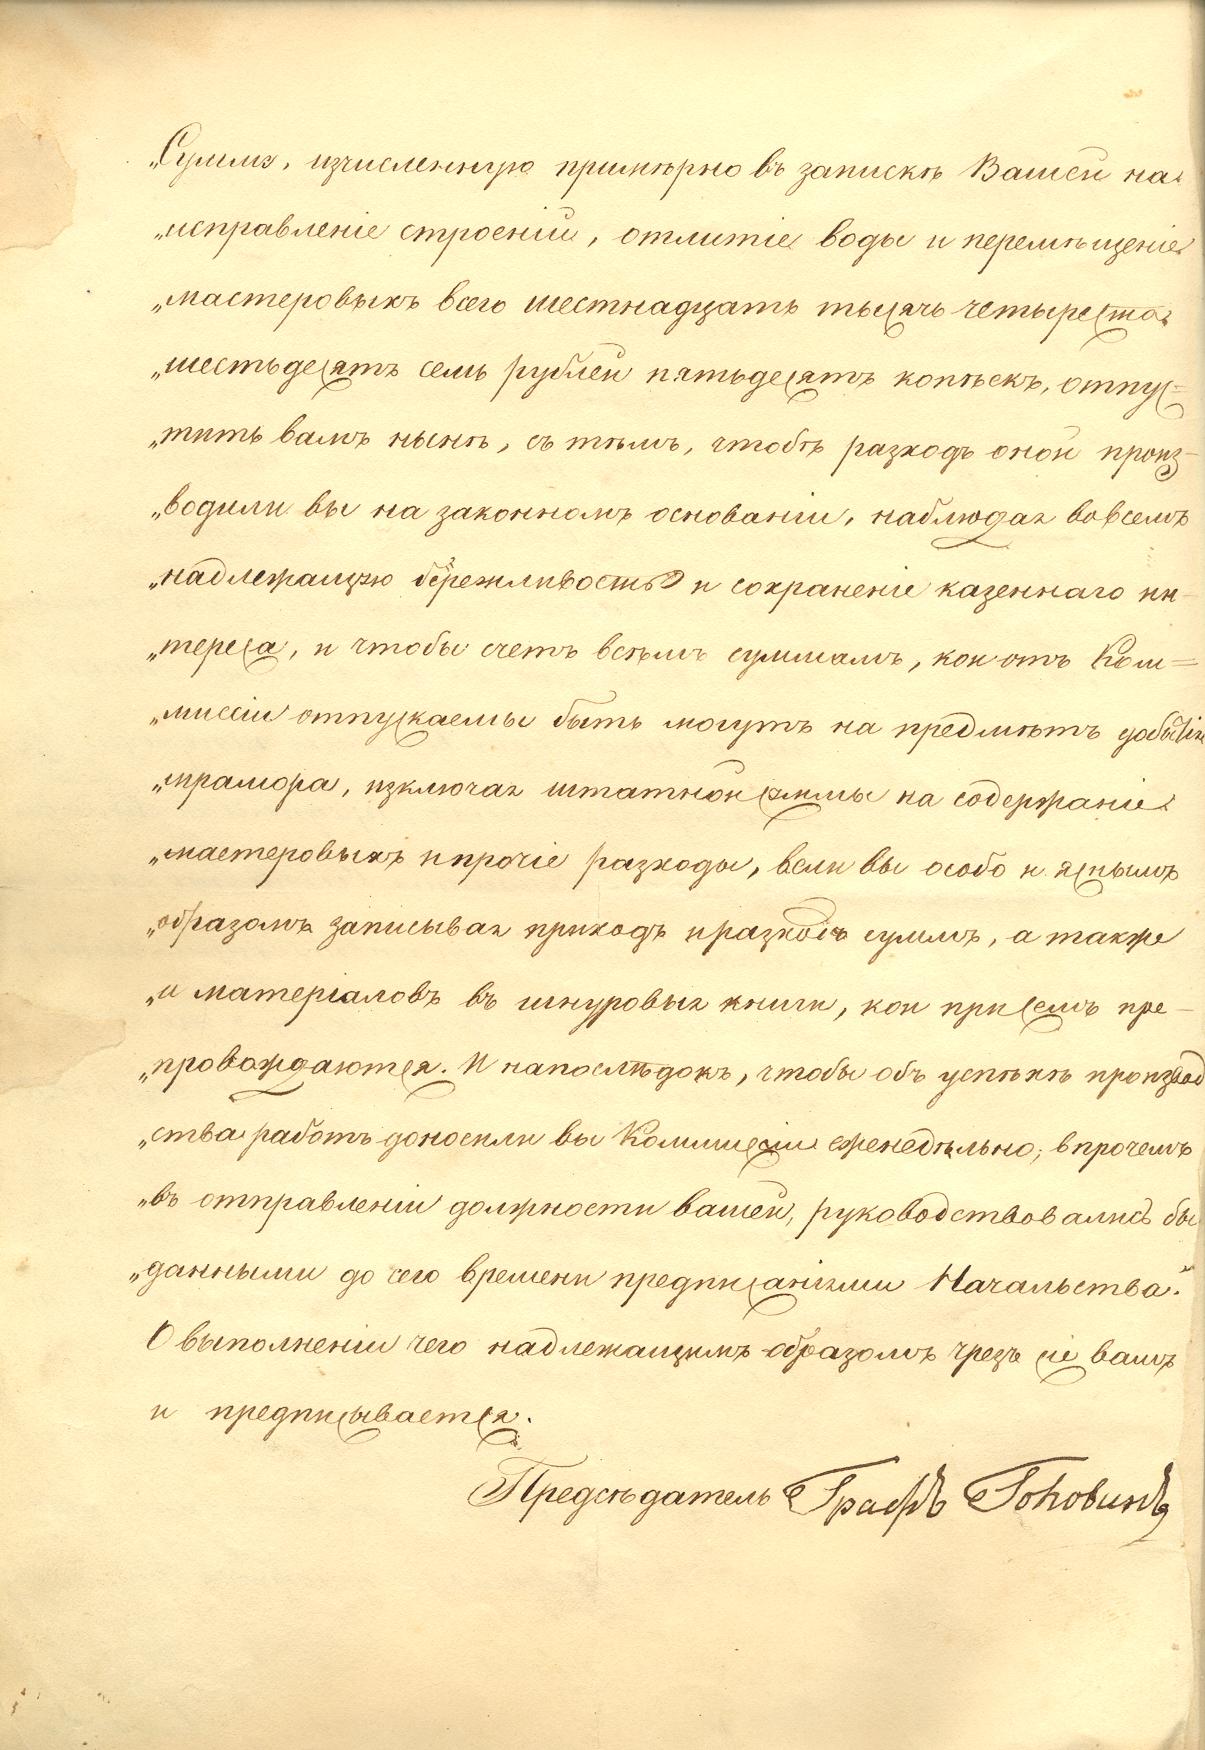 „Сумму, изчисленную примѣрно въ запискѣ Вашей на
„исправленіе строеній, отлитіе воды и перемѣщеніе
„мастеровыхъ всего шестнадцать тысячь четыреста
„шестьдесятъ семь рублей пятьдесятъ копѣекъ, отпус=
„тить вамъ нынѣ, съ тѣмъ, чтобъ разходъ оной произ-
„водили вы на законномъ основаніи, наблюдая вовсемъ
„надлежащую бережливость и сохраненіе казеннаго ин-
„тереса, и чтобы счетъ всѣмъ суммамъ, кои отъ Ком=
„миссіи отпускаемы быть могутъ на предмѣтъ добытія
„мрамора, изключая штатной суммы на содержаніе
„мастеровыхъ и прочіе разходы, вели вы особо и яснымъ
„образомъ записывая приходъ и разходъ суммъ, а также
„и матеріаловъ въ шнуровыя книги, кои при семъ пре-
„провождаются. И напослѣдокъ, чтобы объ успѣхѣ производ
„ства работъ доносили вы Коммиссіи еженедѣльно; впрочемъ
„въ отправленіи должности вашей, руководствовались бы
„данными до сего времени предписаніями Начальства."
О выполненіи чего надлежащимъ образомъ чрезъ сіе вамъ
и предписывается.
Предсѣдатель Графъ Головинъ